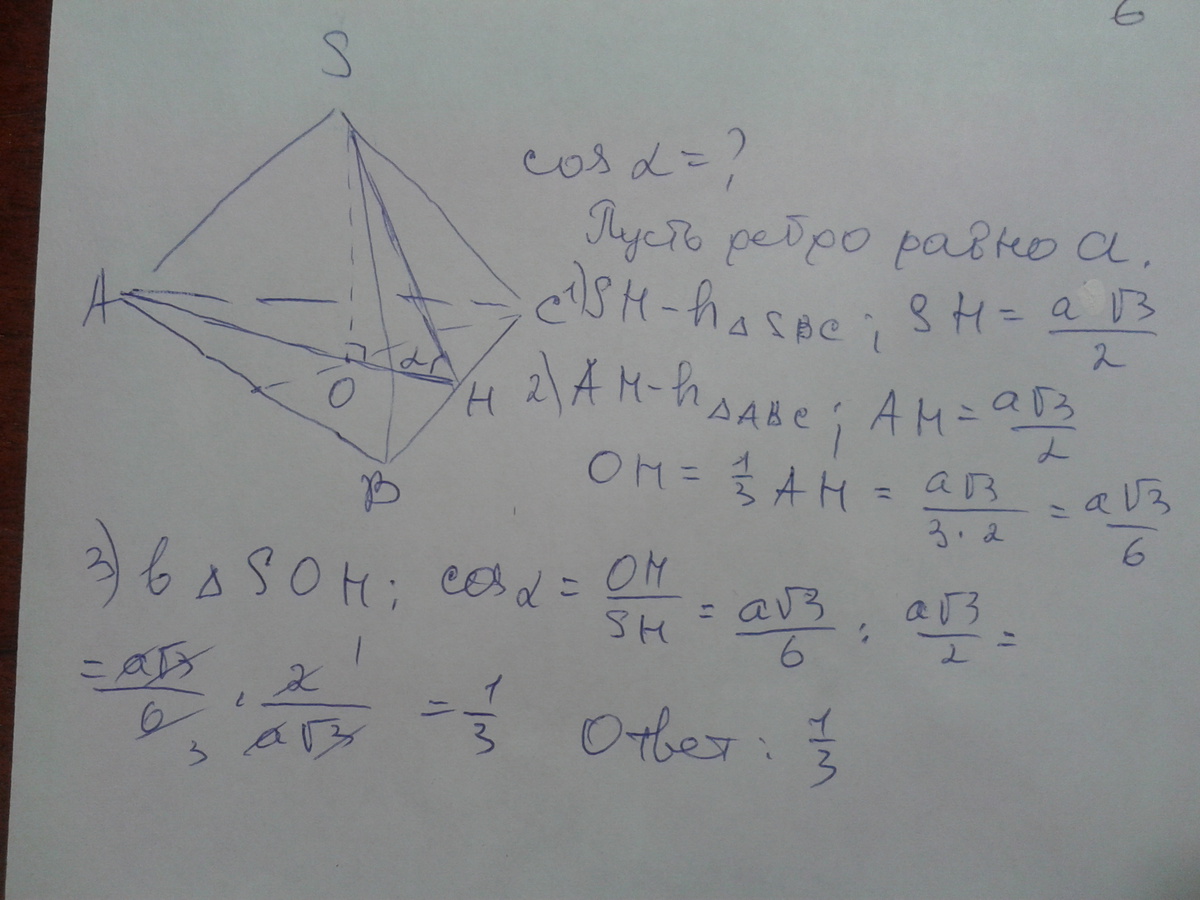 6
S
cos α = ?
Пусть ребро равно a.
A
C
1) SH - h △SBC ; SH = a√3/2
O
α
H
2) AH - h △ABC ; AH = a√3/2
B
OH = 1/3 AH = a√3/3·2 = a√3/6
3) в △ SOH ; cos α = OH/SH = a√3/6 : a√3/2 =
= a√3/6 3 · 2 1/a√3 = 1/3
Ответ : 1/3